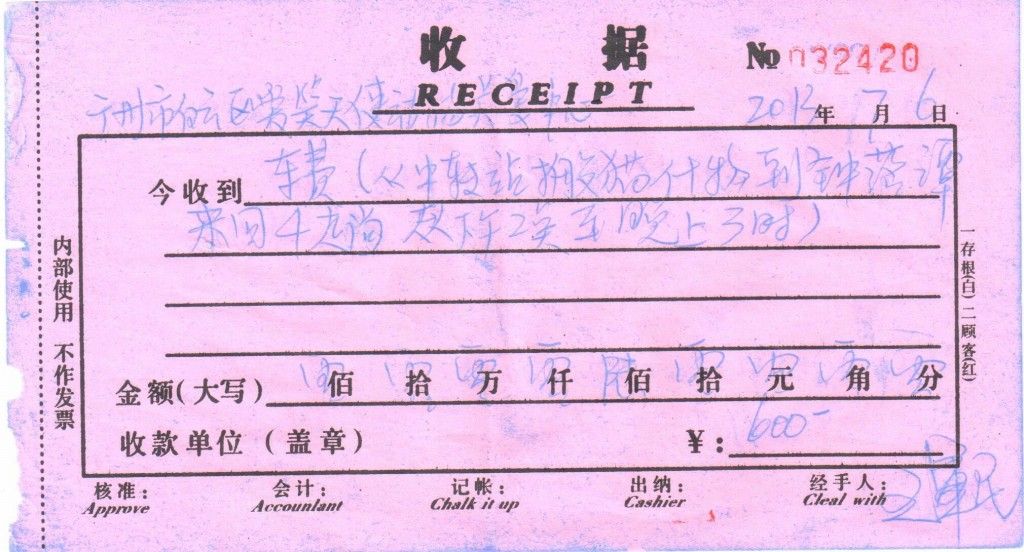 收 据
№ 032420
RECEIPT
广州市白云区 天使 2013 年 7 月 6 日
今收到 车费(从中转站搬猫什物到钟落潭
来回4 晚上3时)
金额(大写) 零 佰 零 拾 零 万 零 仟 陆 佰 零 拾 零 元 零 角 零 分
收款单位 (盖章) ¥: 600-
核准: 会计: 记帐: 出纳: 经手人:
Approve Accounlant Chalk it up Cashier Cleal with
内部使用 不作发票
一存根(白)二顾客(红)